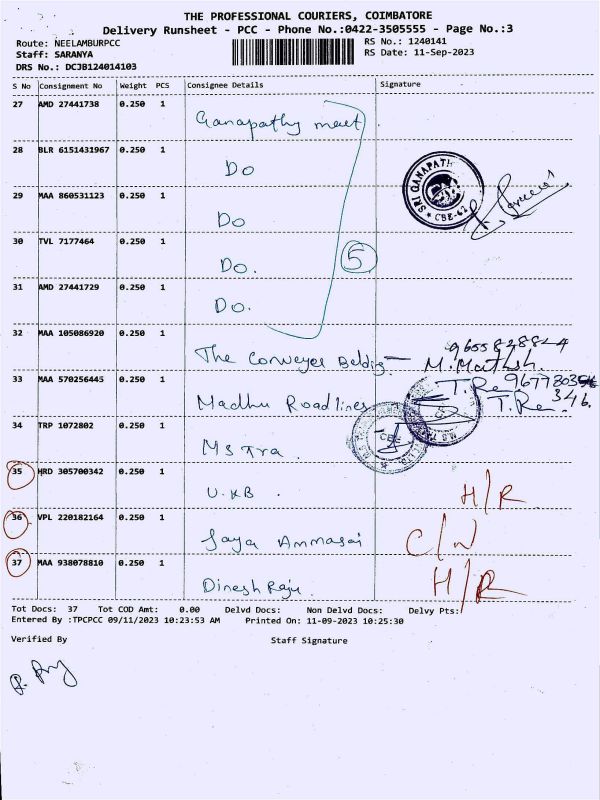 THE PROFESSIONAL COURIERS, COIMBATORE
Delivery Runsheet - PCC - Phone No.:0422-3505555 - Page No.:3
Route: NEELAMBURPCC RS No.: 1240141
Staff: SARANYA RS Date: 11-Sep-2023
DRS No.: DCJB124014103
S No Consignment No Weight PCS Consignee Details Signature
27 AMD 27441738 0.250 1
Ganapathy meet
28 BLR 6151431967 0.250 1
Do
29 MAA 860531123 0.250 1
SRI GANAPATH
CBE-62
Do
30 TVL 7177464 0.250 1
Do. 5
31 AMD 27441729 0.250 1
Do.
32 MAA 105086920 0.250 1
The Conveyer
33 MAA 570256445 0.250 1
Madhu Roadlines
34 TRP 1072802 0.250 1
CBE
MS Tra.
35 HRD 305700342 0.250 1
U.KB. H/R
36 VPL 220182164 0.250 1
Jaya Ammasai C/N
37 MAA 938078810 0.250 1
Dinesh Raju. H/R
Tot Docs: 37 Tot COD Amt: 0.00 Delvd Docs: Non Delvd Docs: Delvy Pts:
Entered By :TPCPCC 09/11/2023 10:23:53 AM Printed On: 11-09-2023 10:25:30
Verified By Staff Signature